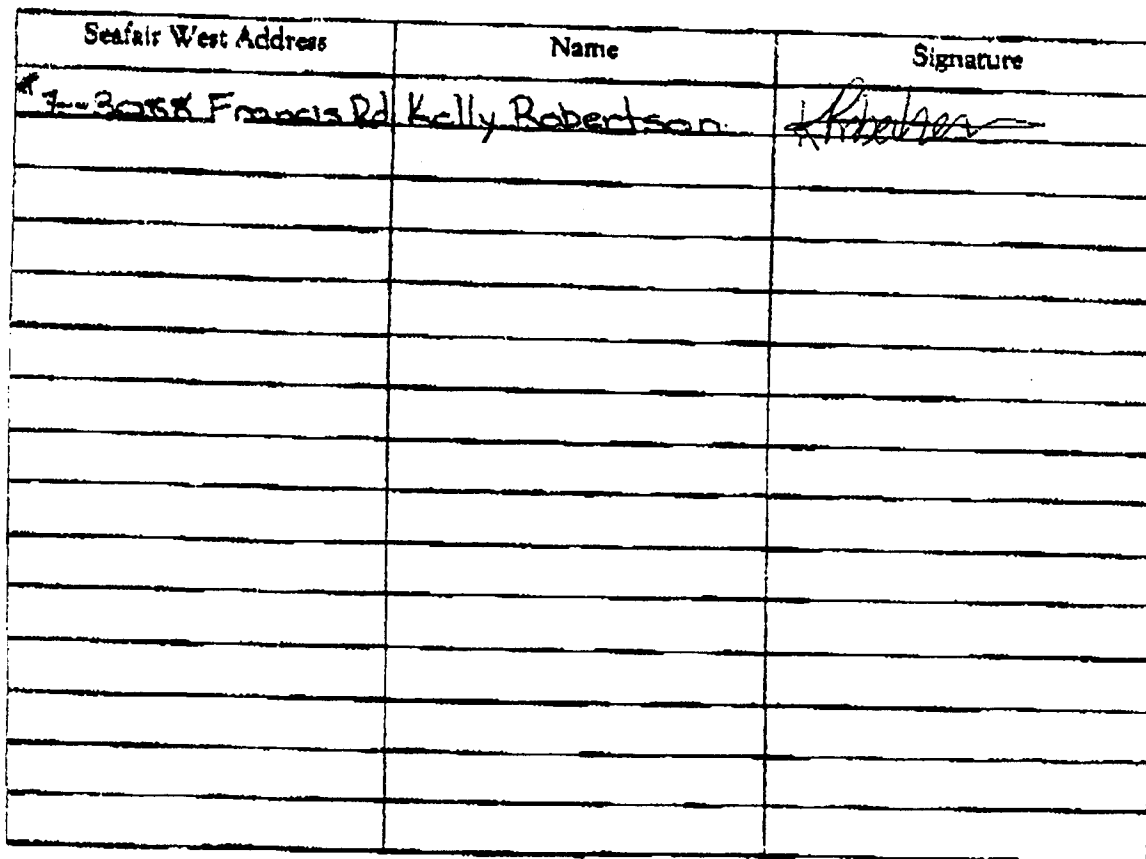 Seafair West Address Name Signature
#7-3088 Francis Rd Kelly Robertson K Robertson